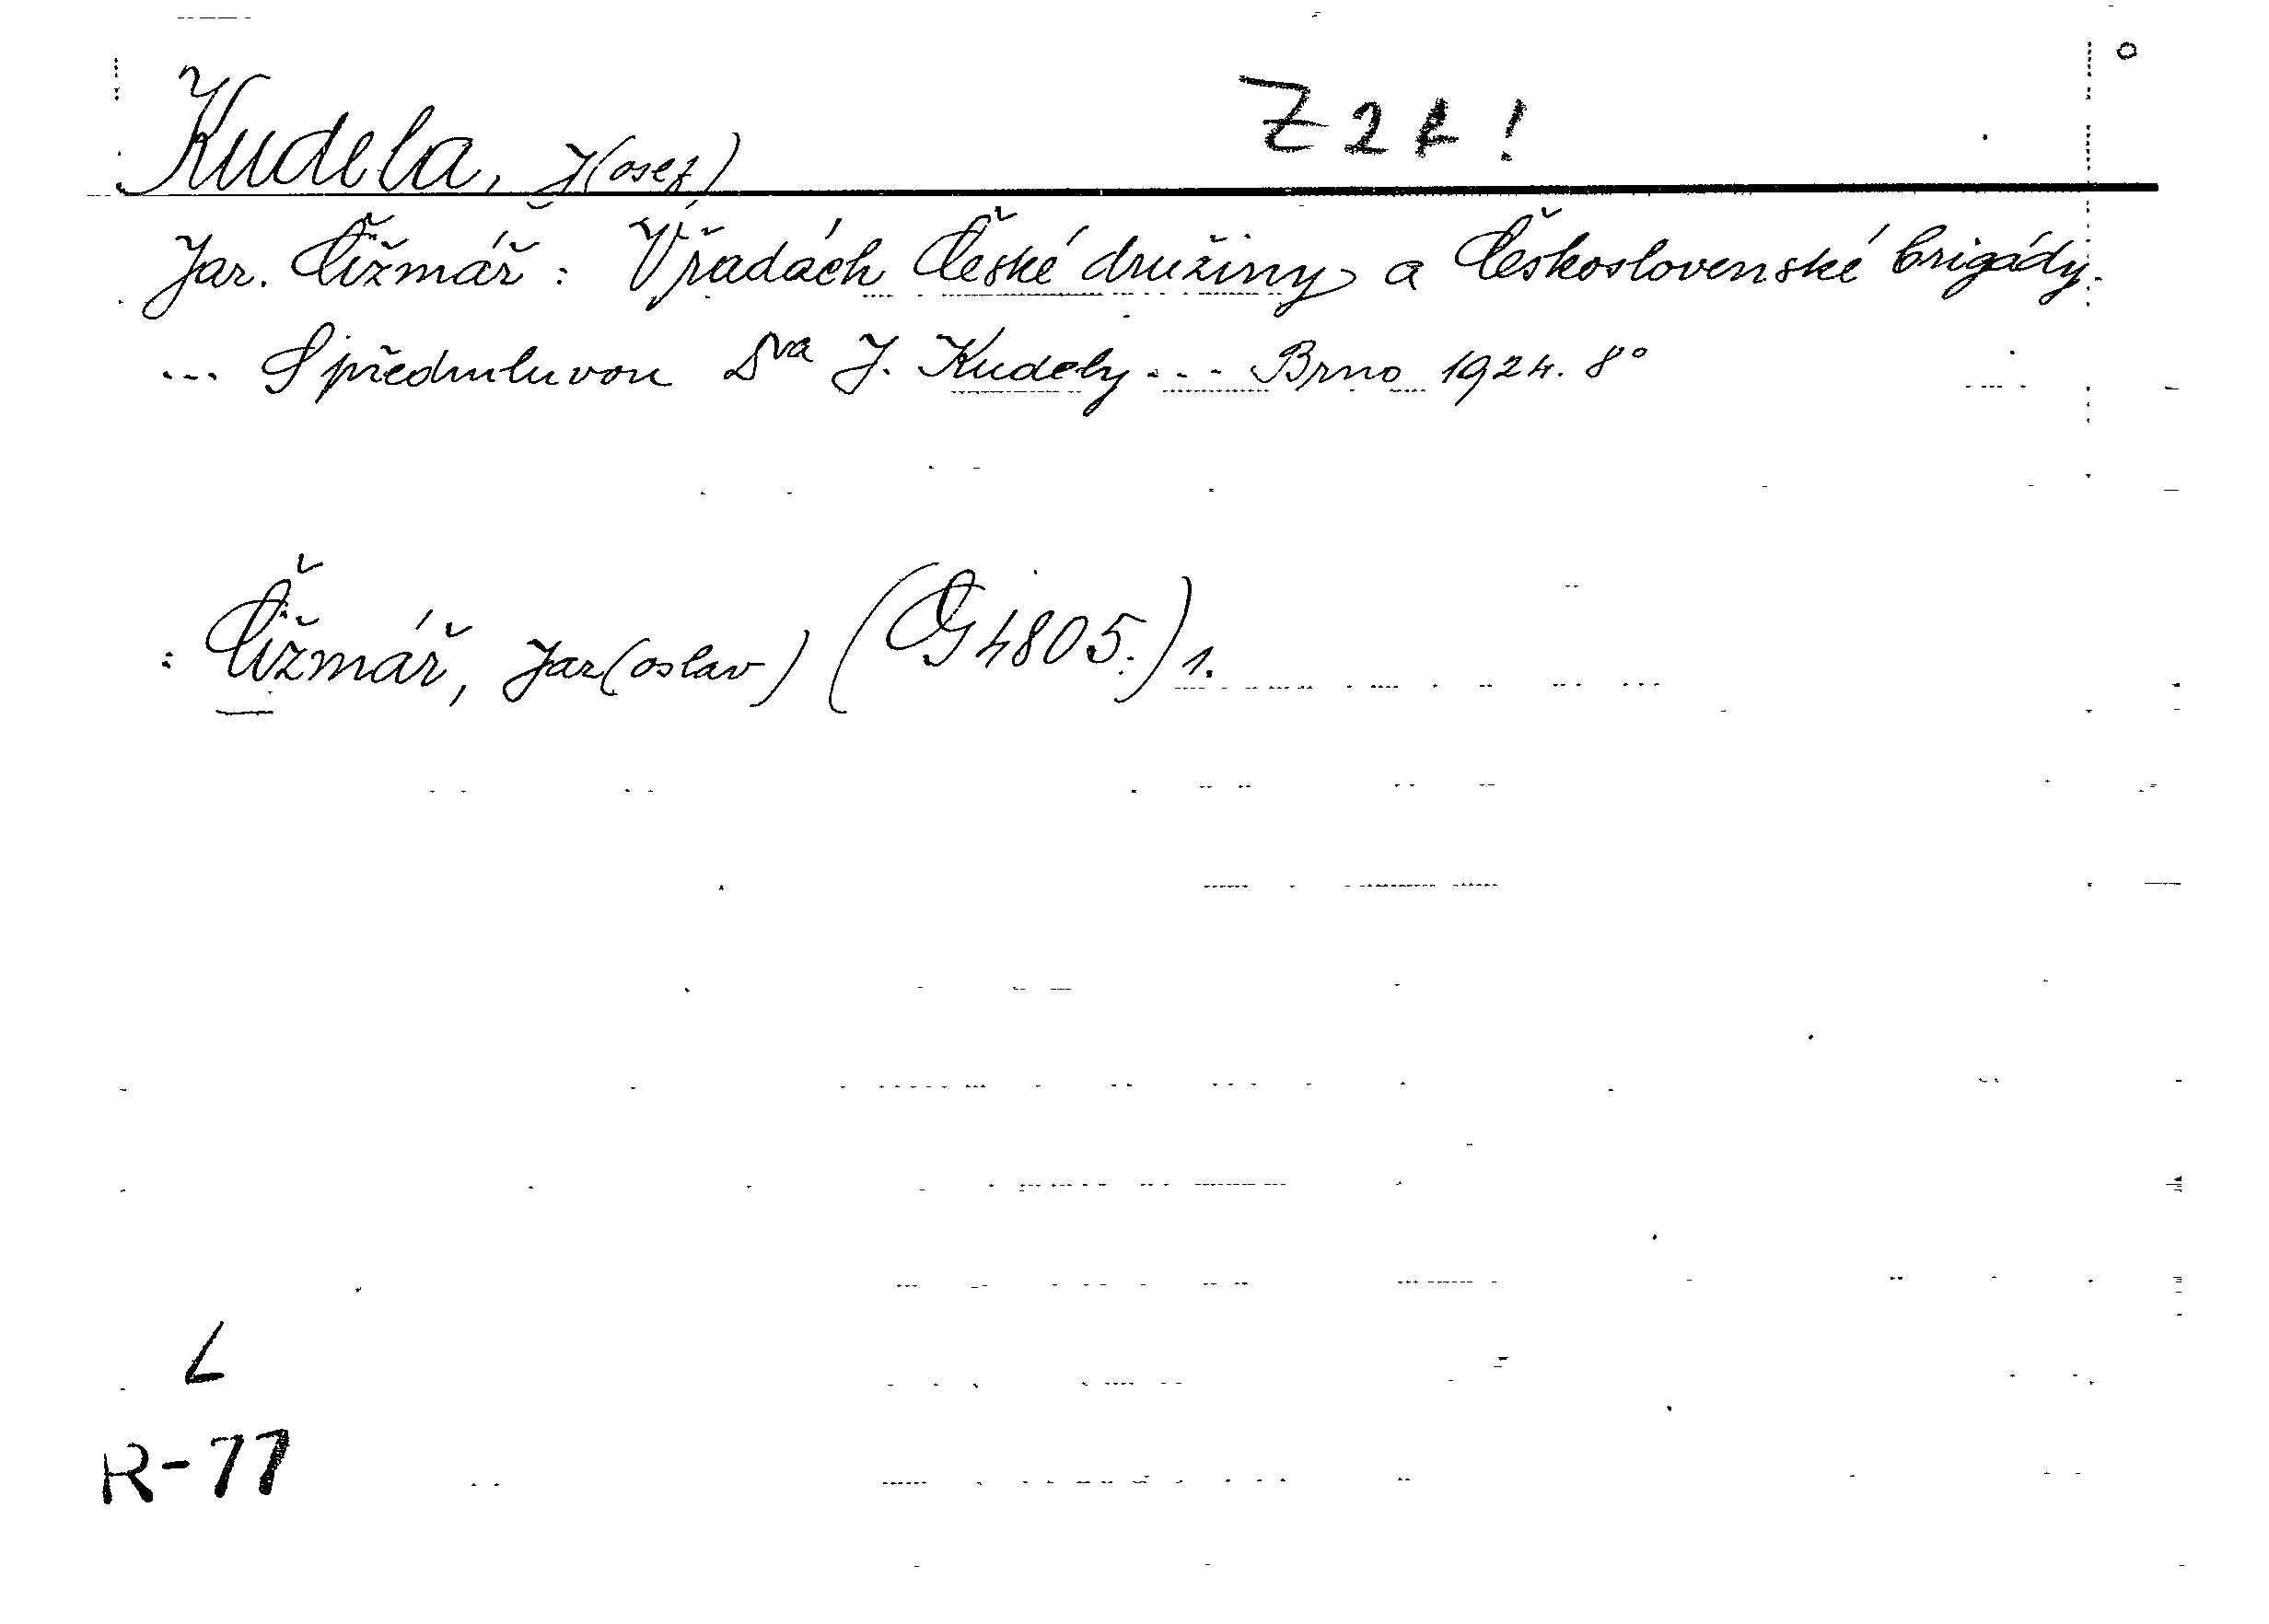 Kudela, J(osef)
Z 2 k !
Jar. Čižmář: V řadách České družiny a Československé brigády.
... S předmluvou Dra J. Kudely ... Brno 1924. 8°
: Čižmář, Jar(oslav) (G 4805.) 1.
L
R-77